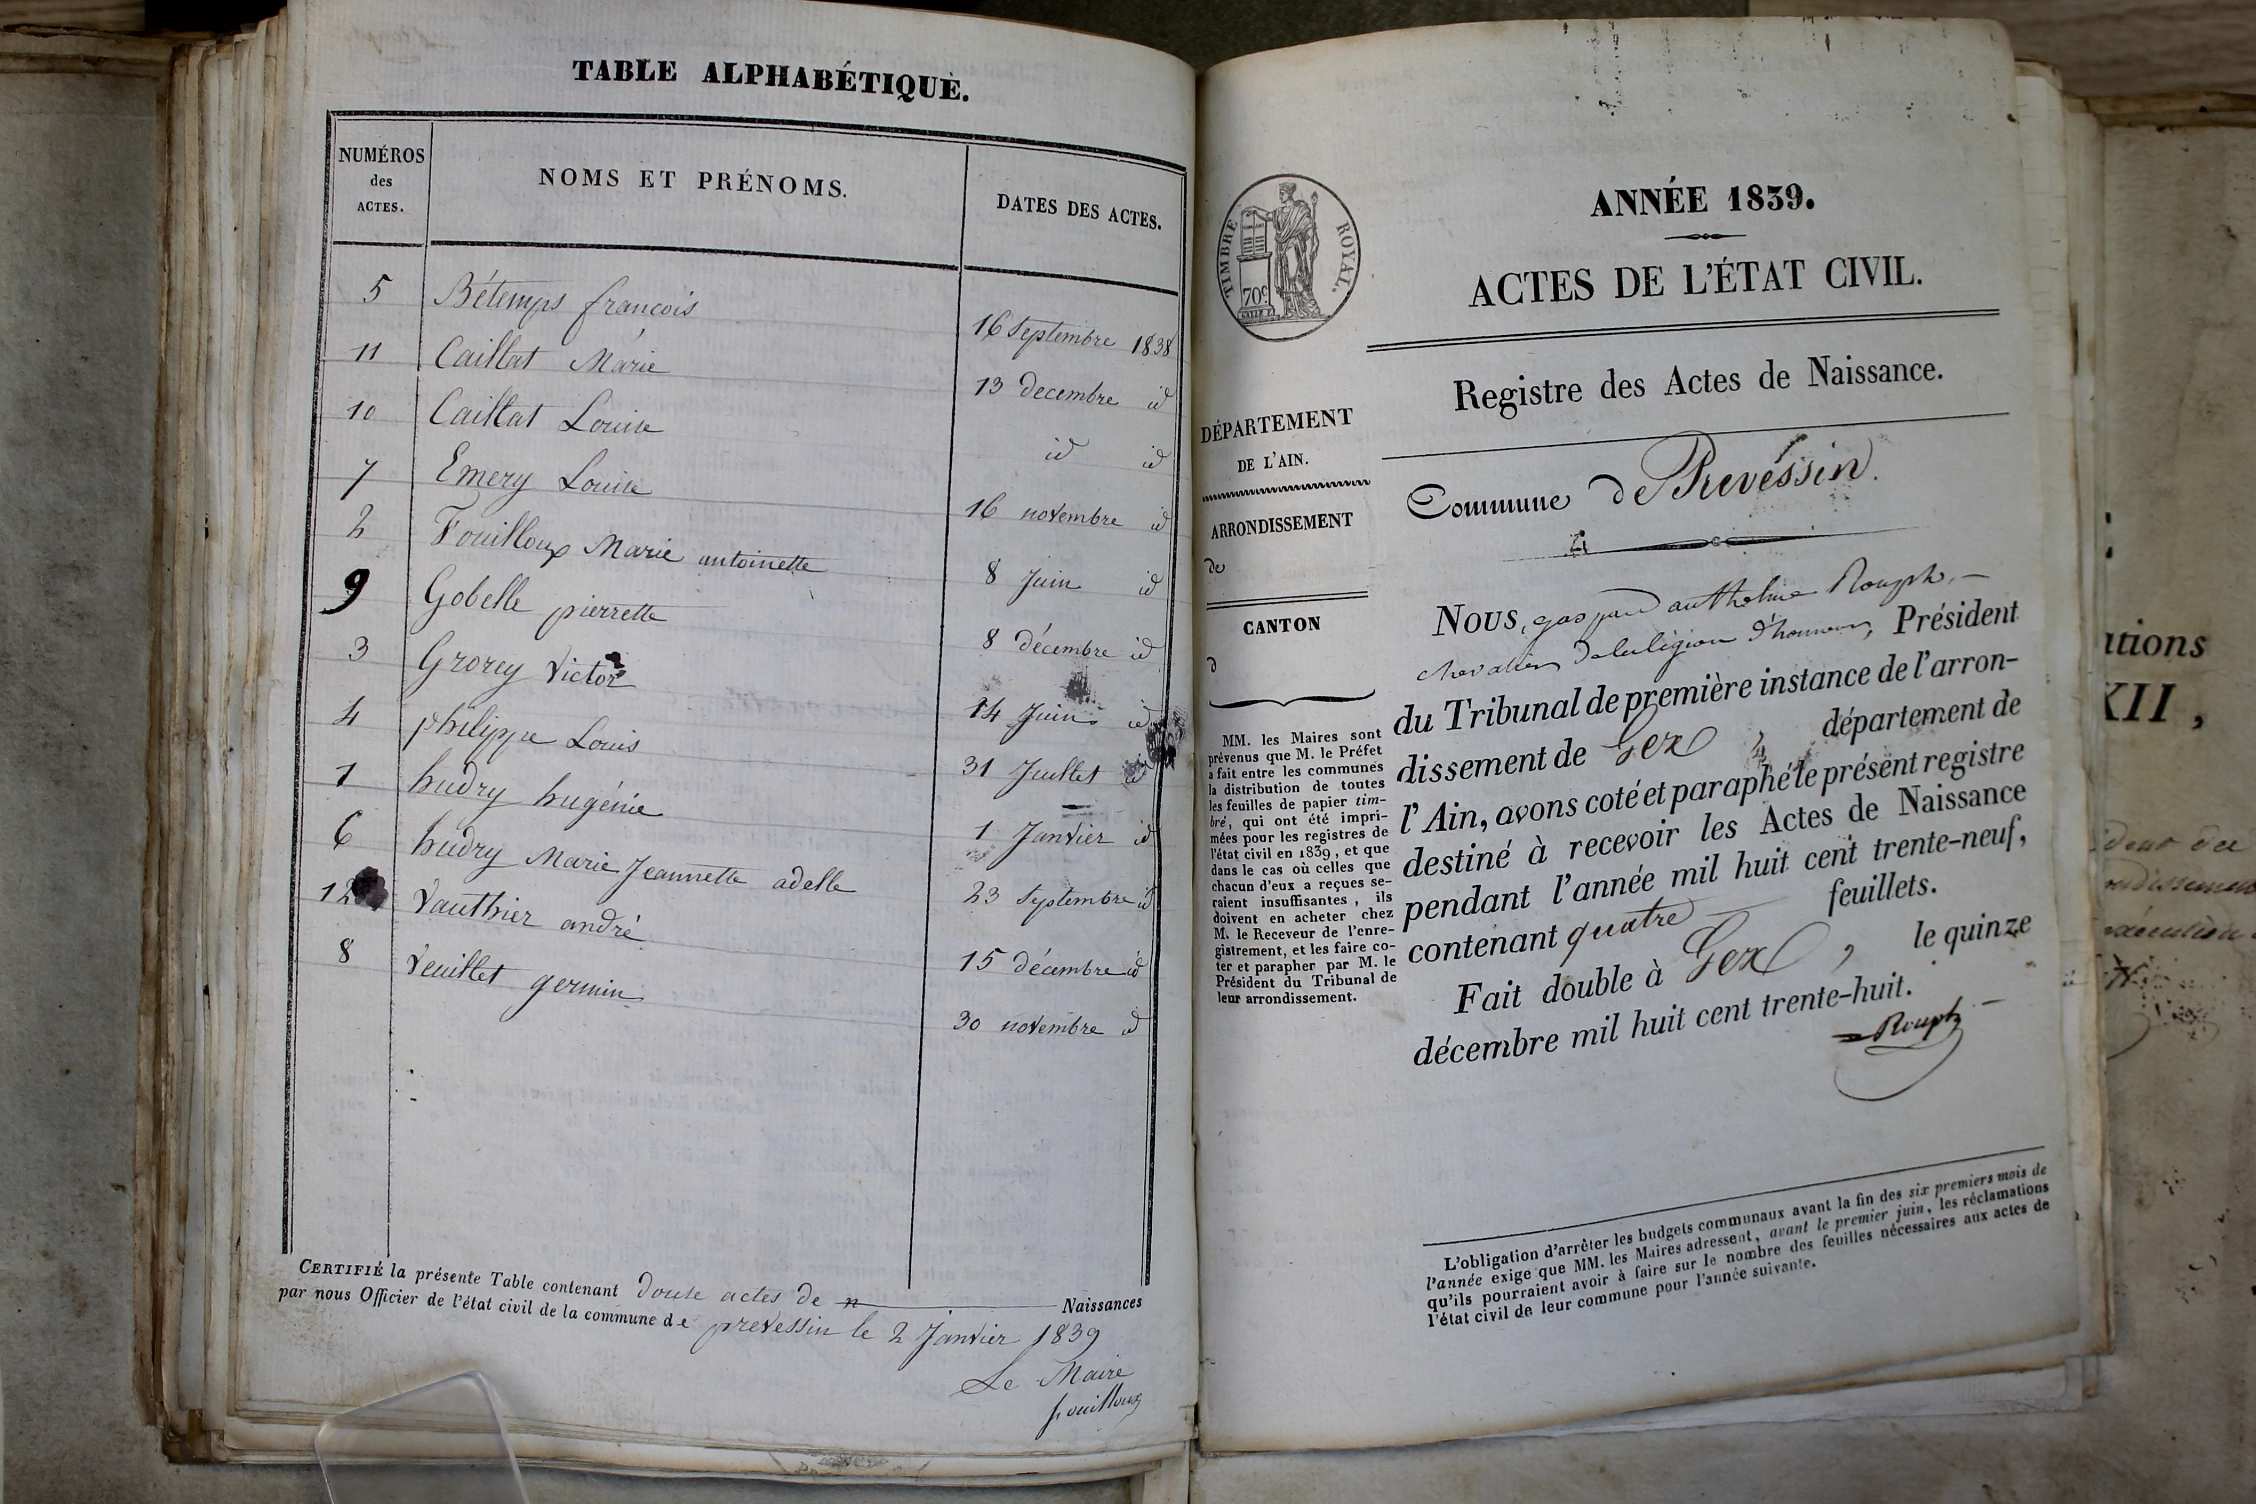 TABLE ALPHABÉTIQUE.
NUMÉROS des ACTES. NOMS ET PRÉNOMS. DATES DES ACTES.
5 Bétemps francois 16 Septembre 1838
11 Caillat Marie 13 decembre id
10 Caillat Louise id id
7 Emery Louise 16 novembre id
2 Fouilloux Marie antoinette 8 Juin id
9 Gobelle pierrette 8 décembre id
3 Grorey Victor 14 Juin id
4 philippe Louis 31 Juillet id
1 hudry hugénie 1 Janvier id
6 hudry Marie Jeannette adelle 23 Septembre id
12 Vauthier andré 15 décembre id
8 Veuillet germin 30 novembre id
CERTIFIÉ la présente Table contenant douse actes de n Naissances
par nous Officier de l'état civil de la commune de prevessin le 2 Janvier 1839
Le Maire
fouilloux
TIMBRE ROYAL.
70c
ANNÉE 1839.
ACTES DE L'ÉTAT CIVIL.
Registre des Actes de Naissance.
DÉPARTEMENT
DE L'AIN.
ARRONDISSEMENT
de
CANTON
d
MM. les Maires sont
prévenus que M. le Préfet
a fait entre les communes
la distribution de toutes
les feuilles de papier tim-
bré, qui ont été impri-
mées pour les registres de
l'état civil en 1839, et que
dans le cas où celles que
chacun d'eux a reçues se-
raient insuffisantes, ils
doivent en acheter chez
M. le Receveur de l'enre-
gistrement, et les faire co-
ter et parapher par M. le
Président du Tribunal de
leur arrondissement.
Commune de Prevéssin.
NOUS, gaspard anthelme Rouph
chevalier de la légion d'honneur, Président
du Tribunal de première instance de l'arron-
dissement de Gex, département de
l'Ain, avons coté et paraphé le présent registre
destiné à recevoir les Actes de Naissance
pendant l'année mil huit cent trente-neuf,
contenant quatre feuillets.
Fait double à Gex, le quinze
décembre mil huit cent trente-huit.
Rouph
L'obligation d'arrêter les budgets communaux avant la fin des six premiers mois de
l'année exige que MM. les Maires adressent, avant le premier juin, les réclamations
qu'ils pourraient avoir à faire sur le nombre des feuilles nécessaires aux actes de
l'état civil de leur commune pour l'année suivante.
ations
XII,